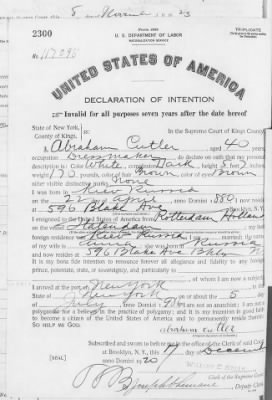 2300
Form 2203
U. S. DEPARTMENT OF LABOR
NATURALIZATION SERVICE
TRIPLICATE
No. 117298
UNITED STATES OF AMERICA
DECLARATION OF INTENTION
Invalid for all purposes seven years after the date hereof
State of New York,
County of Kings,
In the Supreme Court of Kings County
I, Abraham Cutler aged 40 years
occupation Dressmaker, do declare on oath that my personal
description is: Color White, complexion Dark, height 5 feet 7 inches
weight 170 pounds, color of hair Brown, color of eyes Brown
other visible distinctive marks None
I was born in Kiev Russia
on the day of April, anno Domini 1880; I now reside
at 590 Blake Ave, Brooklyn, N.Y.
I emigrated to the United States of America from Rotterdam Holland
on the vessel Statendam
foreign residence was Kiev Russia; I am married;
wife is Annie; she was born at Russia
and now resides at 590 Blake Ave Bklyn
It is my bona fide intention to renounce forever all allegiance and fidelity to any foreign
prince, potentate, state, or sovereignty, and particularly to
of whom I am now a subject
I arrived at the port of New York
State of New York on or about the 5 day
of July, anno Domini 190; I am not an anarchist; I am not a
polygamist nor a believer in the practice of polygamy; and it is my intention in good faith
to become a citizen of the United States of America and to permanently reside therein:
SO HELP ME GOD.
abraham cutler
Subscribed and sworn to before me in the office of the Clerk of said Court
at Brooklyn, N.Y., this 17 day of December
anno Domini 1920
[SEAL]
Clerk of the Supreme Court
By Deputy Clerk